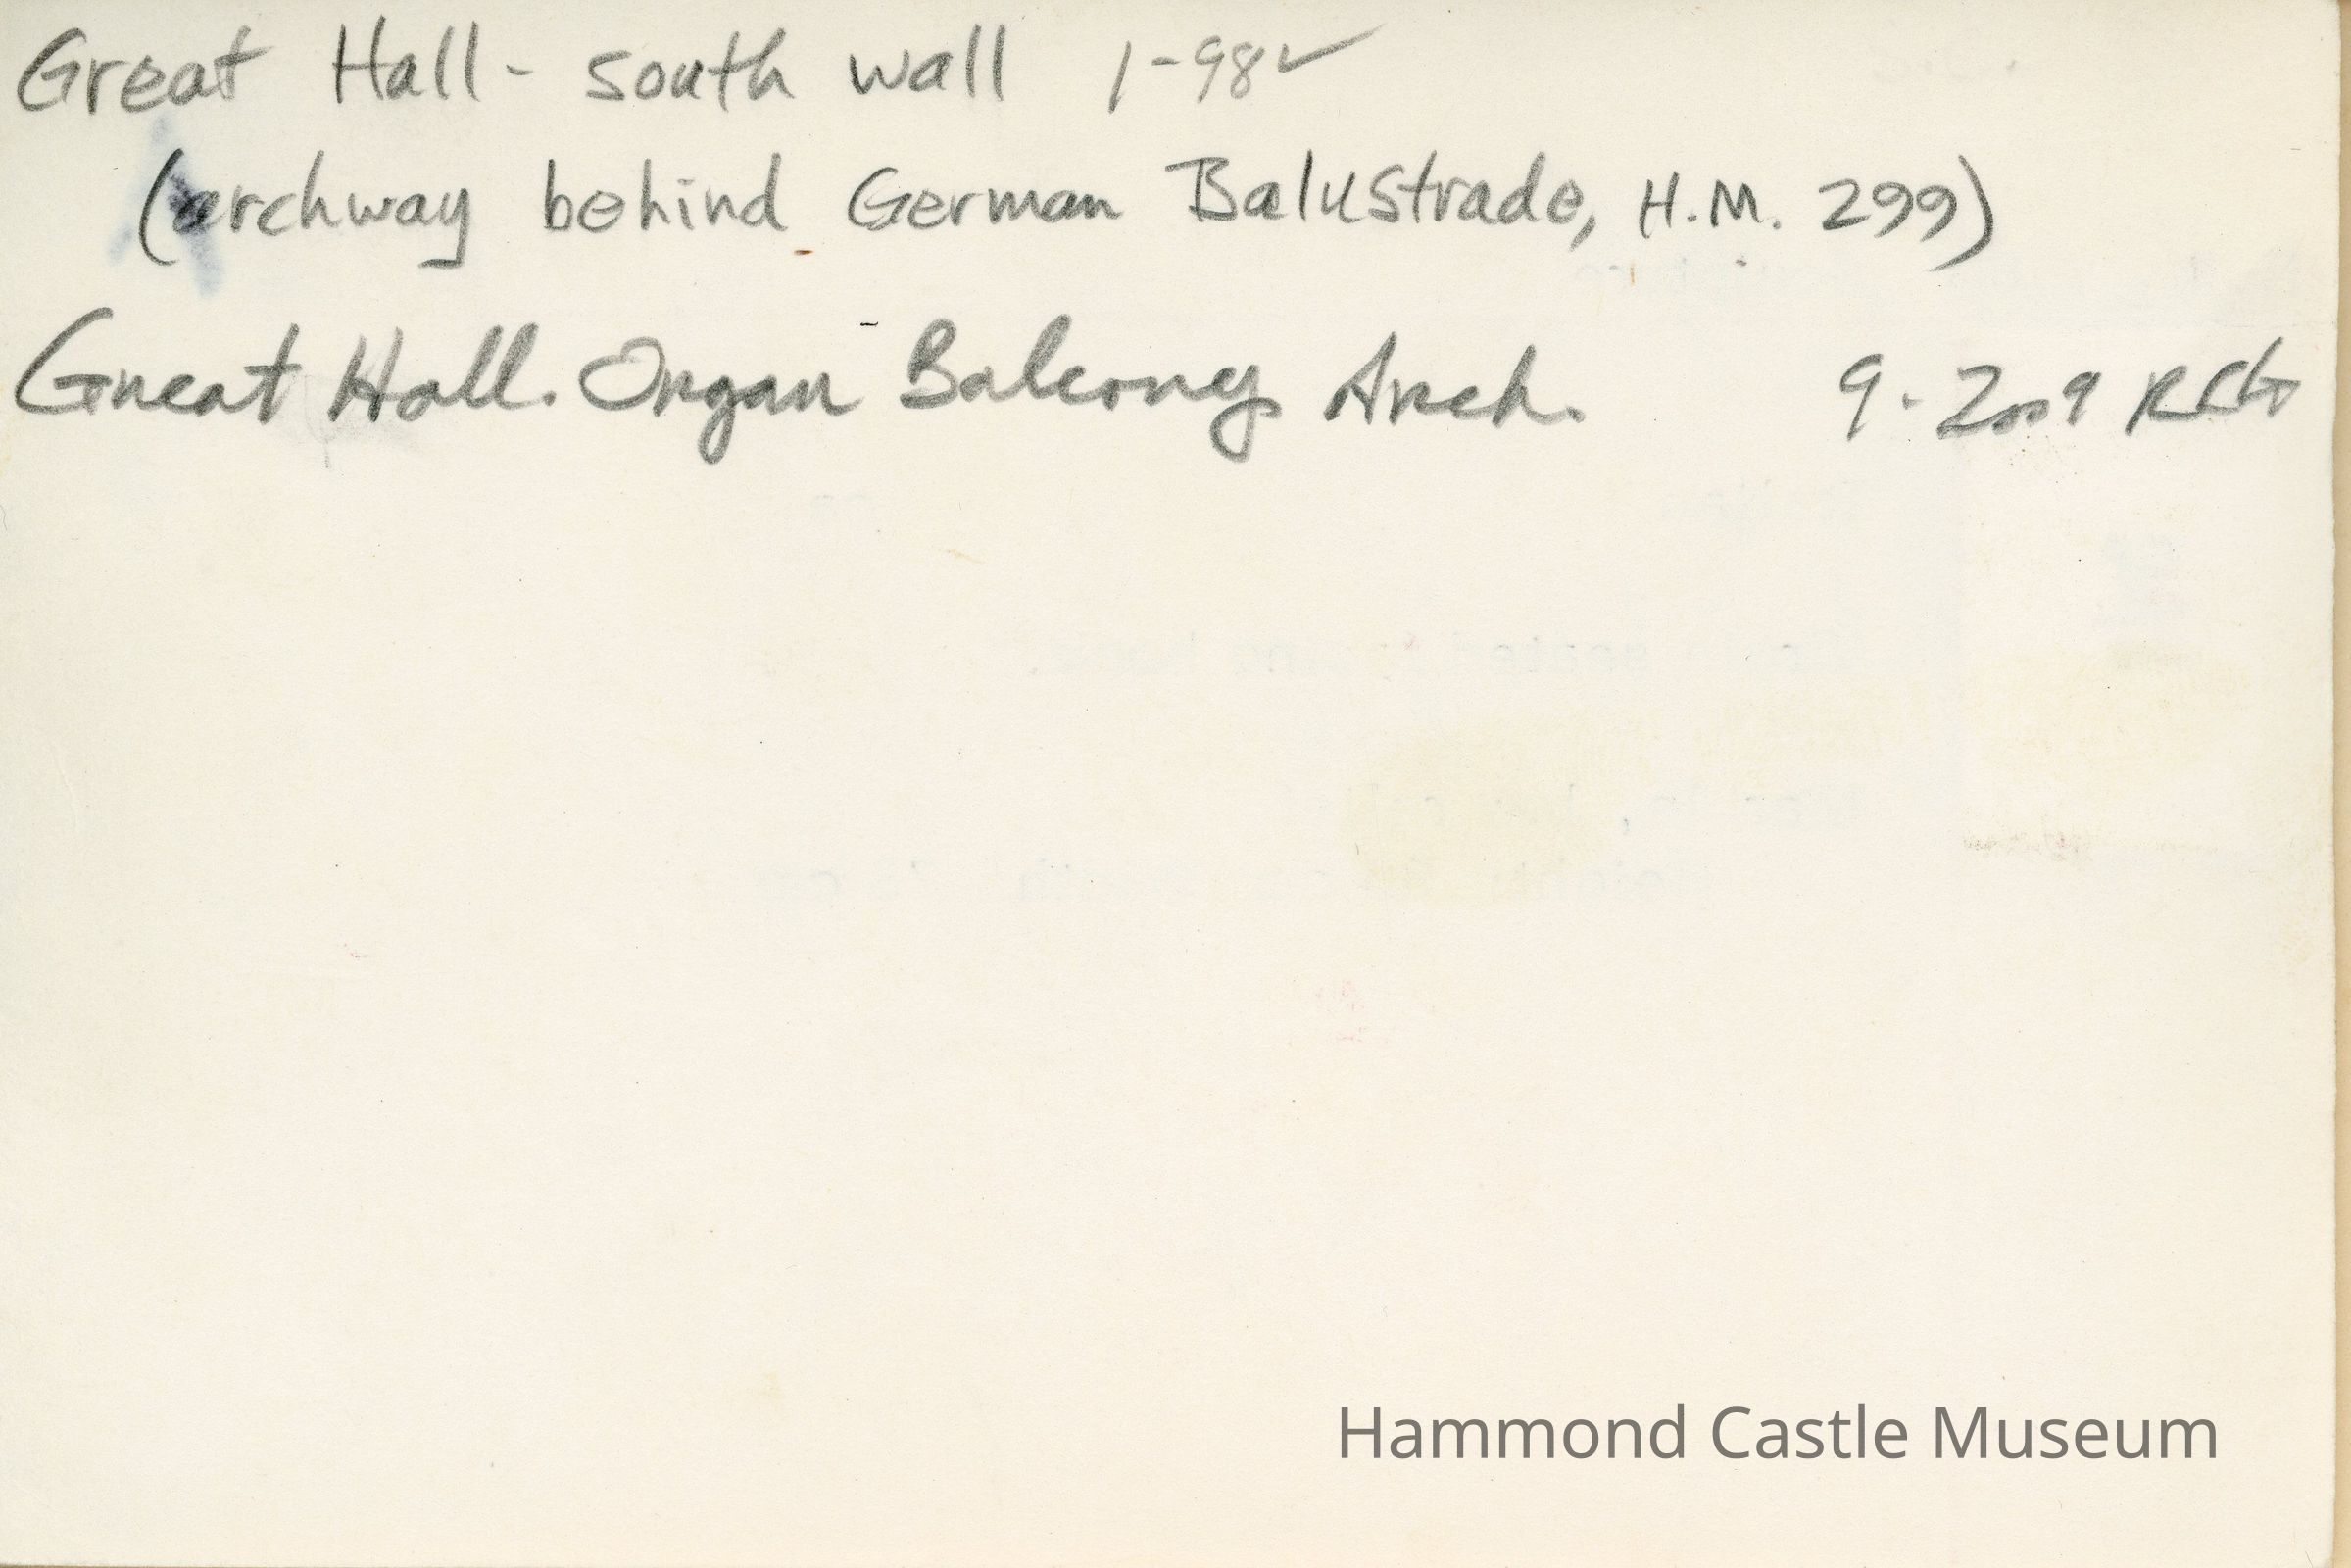 Great Hall - south wall 1-98 ✓
(archway behind German Balustrade, H.M. 299)
Great Hall. Organ Balcony Arch. 9-2009
Hammond Castle Museum